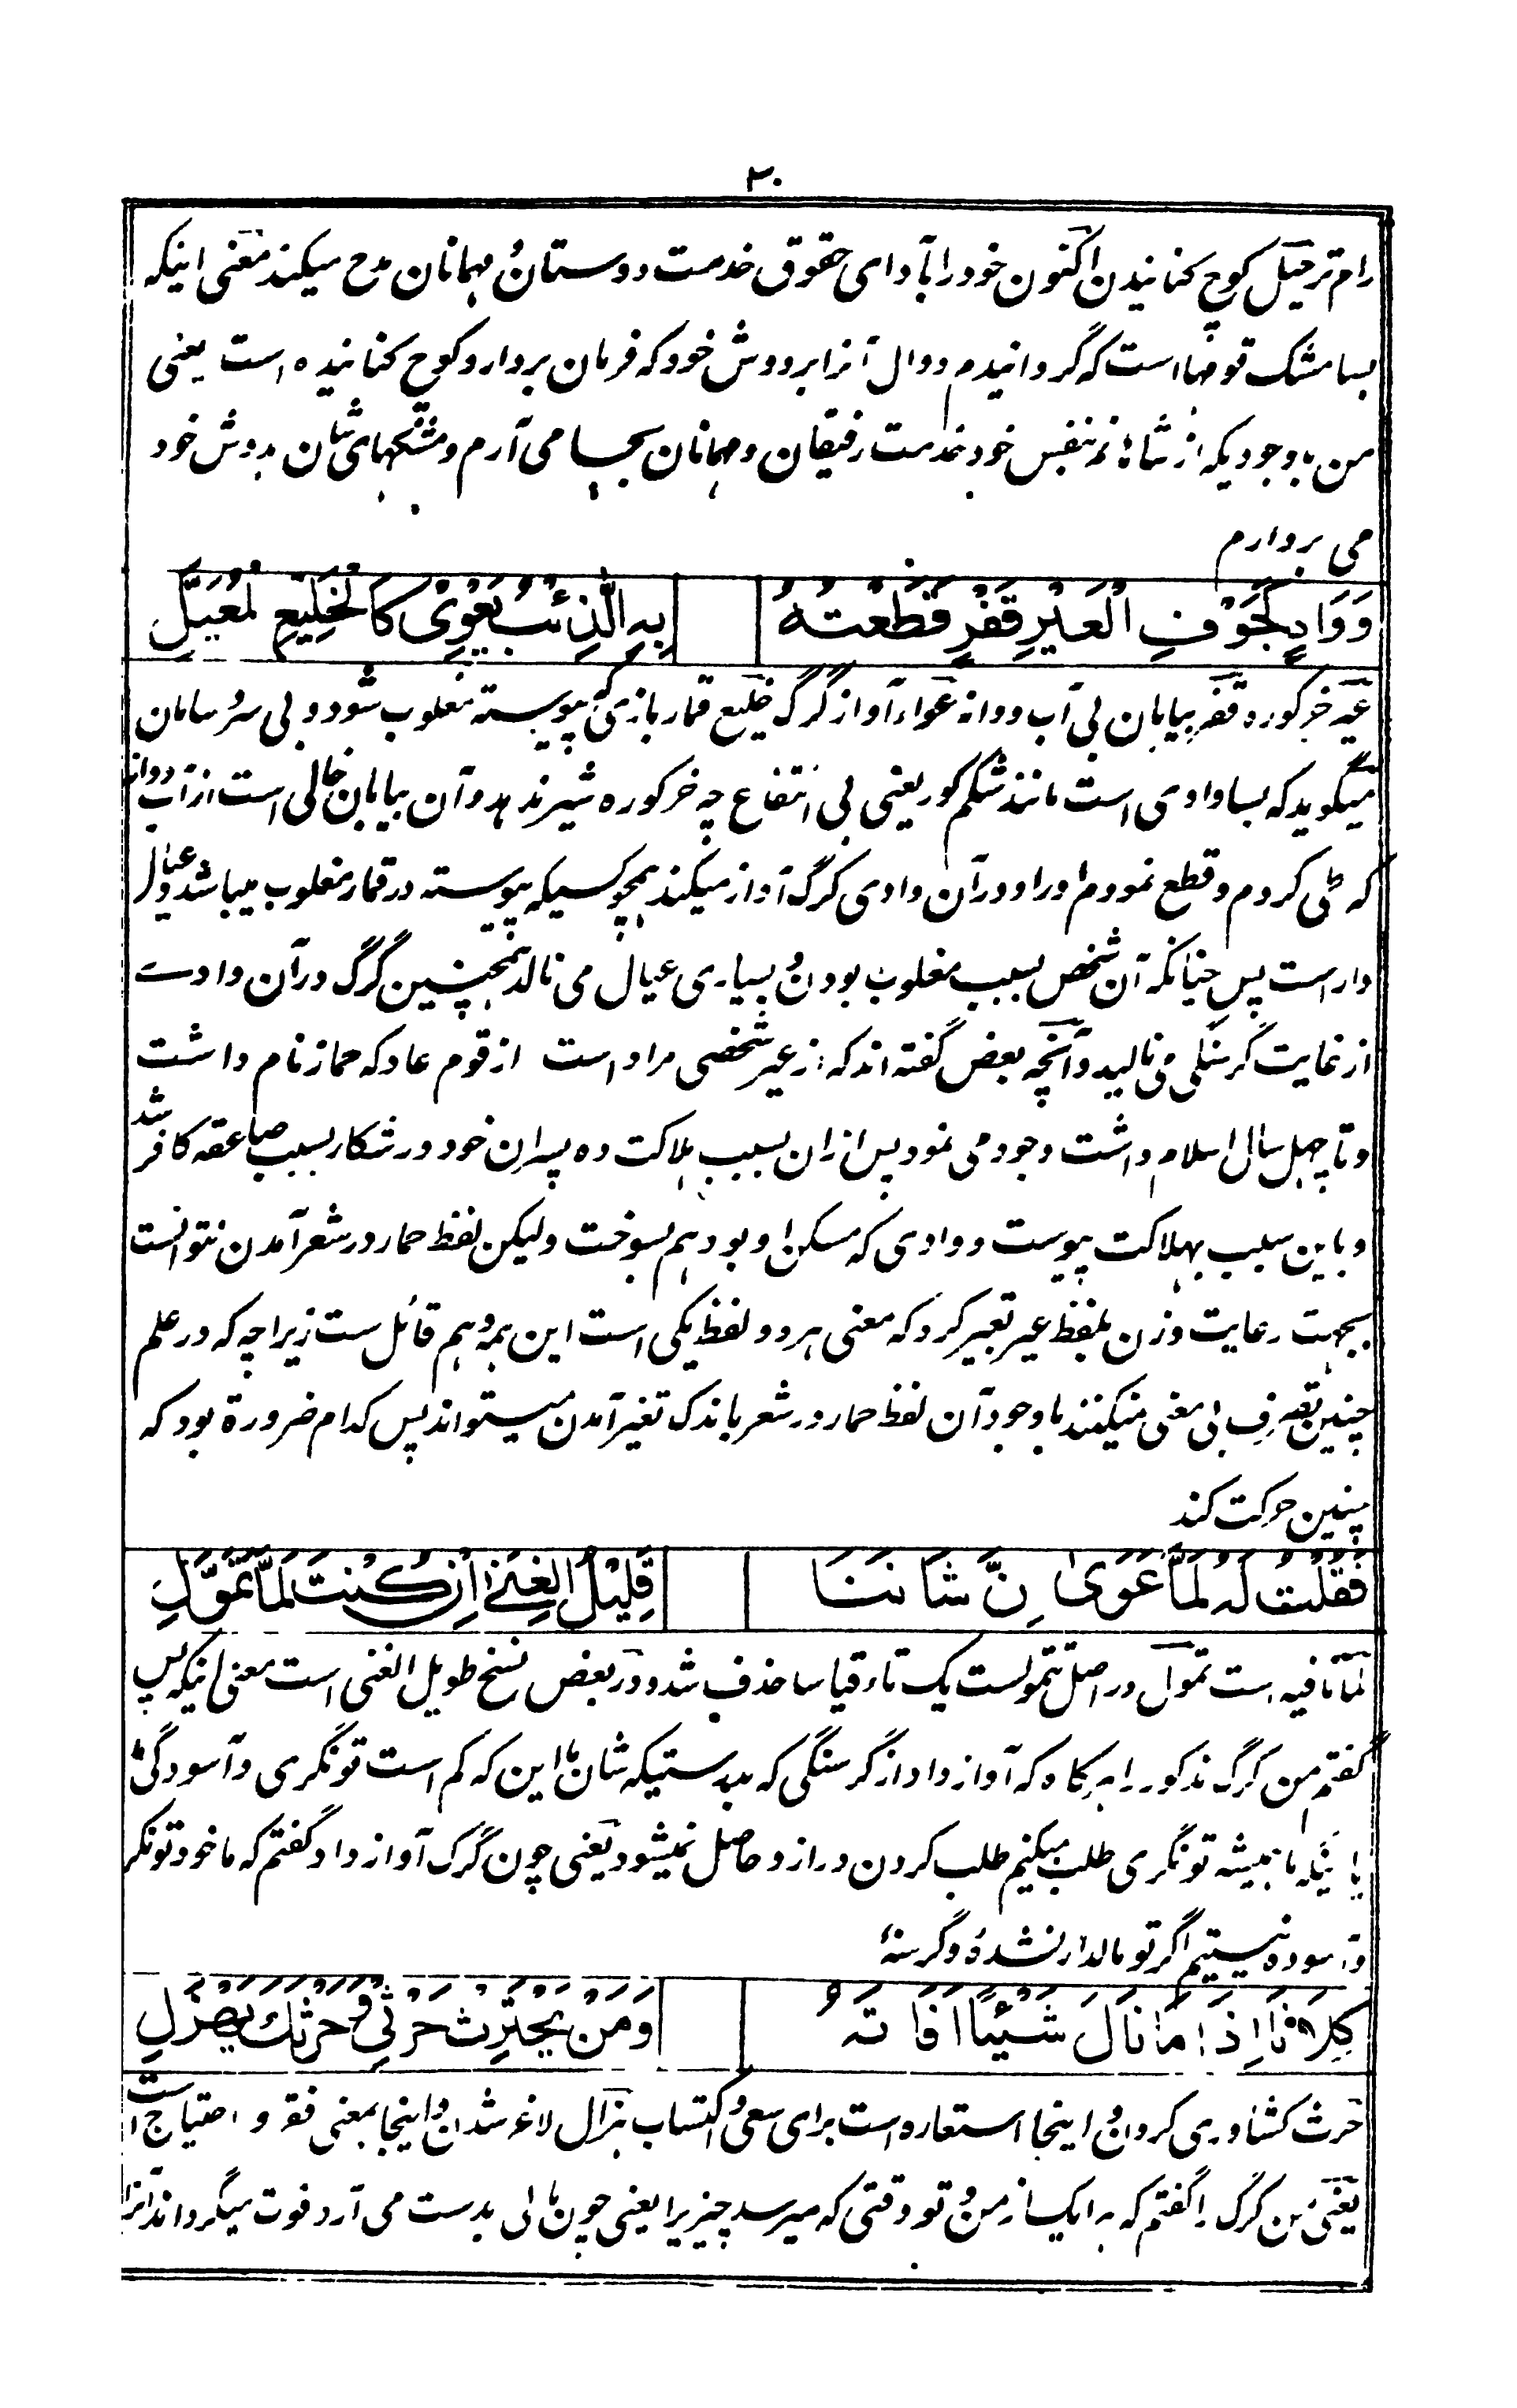 ۳۰
رام ترحیل کوچ کنانیدن اکنون خود را بادای حقوق خدمت دوستان و مهمانان مدح میکند معنی اینکه
بسا مشک قومها است که گردانیدم دوال آنرا بر دوش خود که فرمان بردار و کوچ کنانیده است یعنی
من باوجودیکه از شاهانم بنفس خود بخدمت رفیقان و مهمانان بجا می آرم و مشکهای شان بدوش خود
می بردارم
وَوَادٍ كَجَوْفِ الْعَيْرِ قَفْرٍ قَطَعْتُهُ
بِهِ الذِّئْبُ يَعْوِيْ كَالْخَلِيْعِ الْمُعَيَّلِ
عیر خر کوره قفر بیابان بی آب و دانه عواء آواز گرگ خلیع قمار بازی که پیوسته مغلوب شود و بی سر و سامان
میگوید که بسا وادی است مانند شکم کور یعنی بی انتفاع چه خرکوره شیر ندهد و آن بیابان خالی است از آب و دانه
که طی کردم و قطع نمودم او را و در آن وادی گرگ آواز میکند همچو کسیکه پیوسته در قمار مغلوب میباشد و عیال
دار است پس چنانکه آن شخص بسبب مغلوب بودن و بسیاری عیال می نالد همچنین گرگ در آن وادی
از غایت گرسنگی می نالید و آنچه بعض گفته اند که از عیر شخصی مراد است از قوم عاد که حمار نام داشت
و تا چهل سال اسلام داشت وجود می نمود پس ازان بسبب هلاکت ده پسران خود در شکار بسبب صاعقه کافر شد
و باین سبب بهلاکت پیوست و وادی که مسکن او بود هم بسوخت ولیکن لفظ حمار در شعر آمدن نتوانست
بجهت رعایت وزن بلفظ عیر تعبیر کرد که معنی هر دو لفظ یکی است این همه وهم قائل ست زیراچه که در علم
چنین تصرف بی معنی نمیکنند باوجود آن لفظ حمار در شعر باندک تغیر آمدن میتواند پس کدام ضرورة بود که
چنین حرکت کند
فَقُلْتُ لَهُ لَمَّا عَوَىٰ اِنَّ شَانَنَا
قَلِيْلُ الْغِنَىٰ اِنْ كُنْتَ لَمَّا تَمَوَّلِ
لما نافیه است تمول در اصل تتمول ست یک تاء قیاسا حذف شد و در بعض نسخ طویل الغنی است معنی اینکه پس
گفتم من گرگ مذکور را هرگاه که آواز داد از گرسنگی که بدرستیکه شان ما این که کم است تونگری و آسودگی ما
یا اینکه ما همیشه تونگری طلب میکنیم طلب کردن دراز و حاصل نمیشود یعنی چون گرگ آواز داد گفتم که ما خود تونگر
و آسوده نیستیم اگر تو مالدار نشدهٔ و گرسنهٔ
كِلَانَا اِذَا مَا نَالَ شَيْئًا اَفَاتَهُ
وَمَنْ يَحْتَرِثْ حَرْثِيْ وَحَرْثَكَ يَهْزُلِ
حرث کشاوری کردن و اینجا استعاره است برای سعی و اکتساب هزال لاغر شدن و اینجا بمعنی فقر و احتیاج است
یعنی من گرگ را گفتم که هر ایک از من و تو وقتی که میرسد چیزیرا یعنی چون مالی بدست می آرد فوت میگرداند آنرا